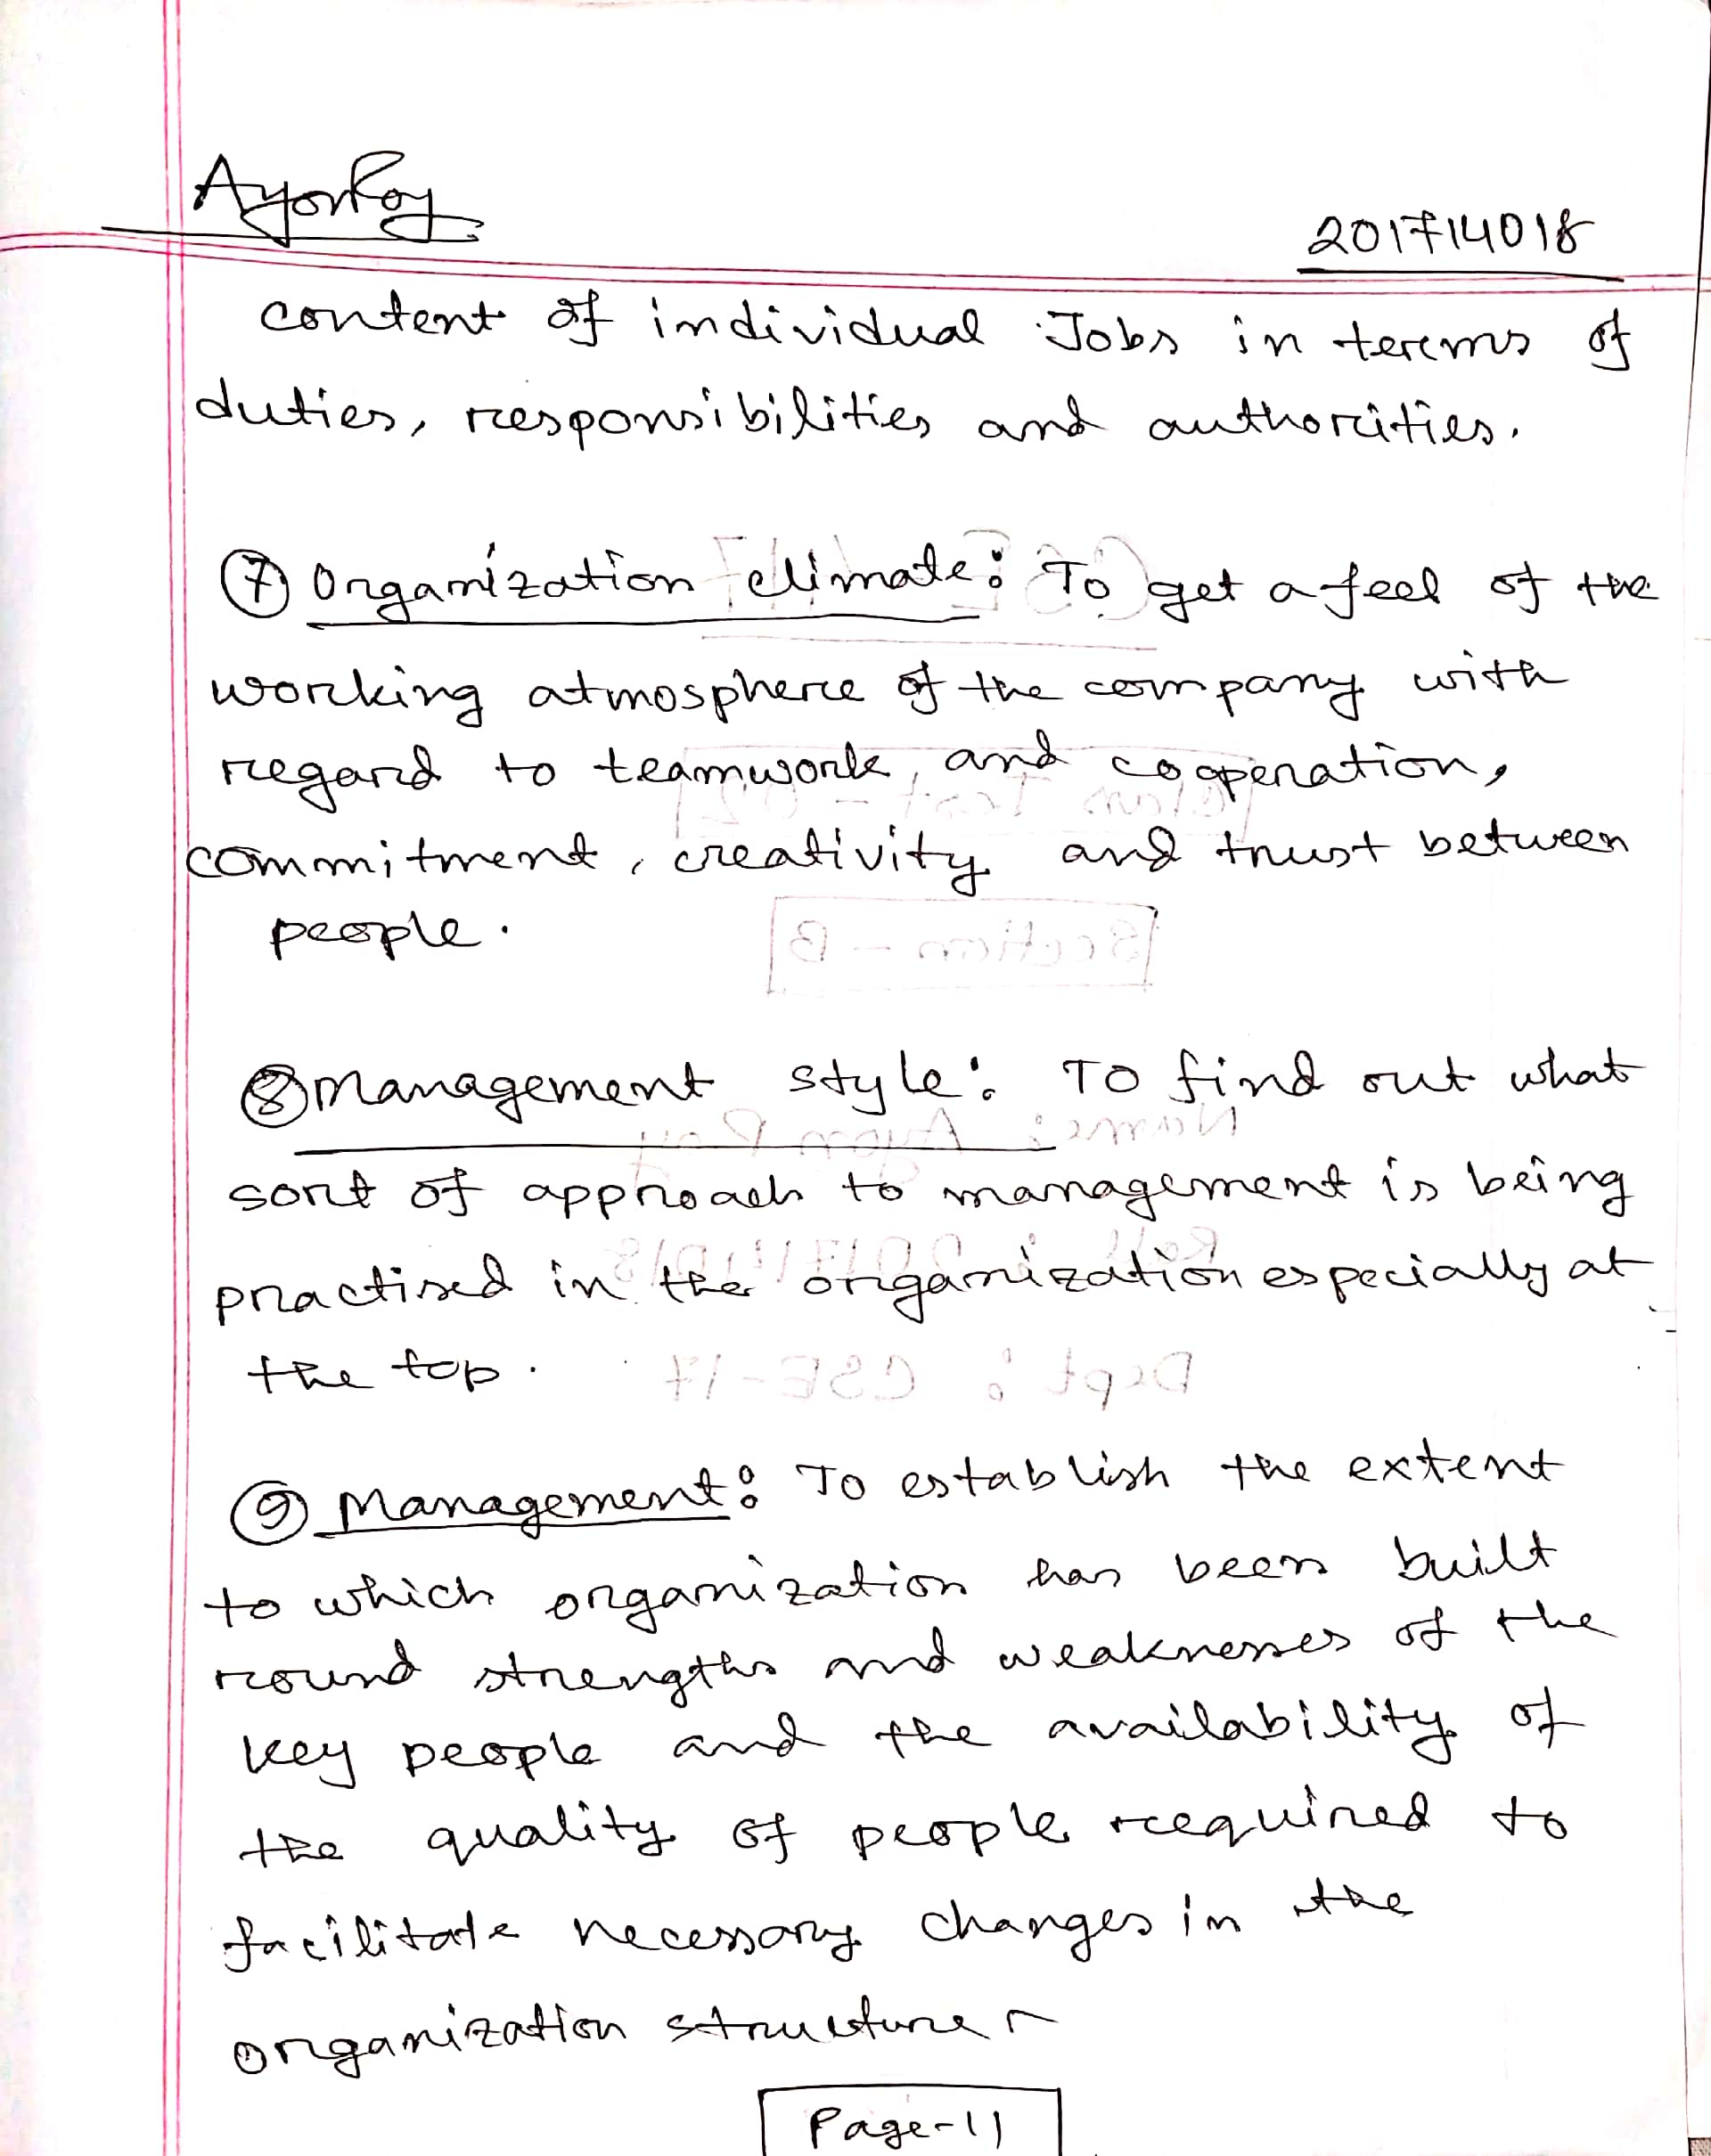 AyonRoy
201714018
content of individual Jobs in terms of
duties, responsibilities and authorities.
⑦ Organization climate: To get a feel of the
working atmosphere of the company with
regard to teamwork, and cooperation,
commitment, creativity and trust between
people.
Section - B
⑧ Management style: To find out what
Name: Ayon Roy
sort of approach to management is being
Roll: 201714018
practised in the organization especially at
the top.
Dept: CSE-17
⑨ Management: To establish the extent
to which organization has been built
round strengths and weaknesses of the
key people and the availability of
the quality of people required to
facilitate necessary changes in the
organization structure
Page-11